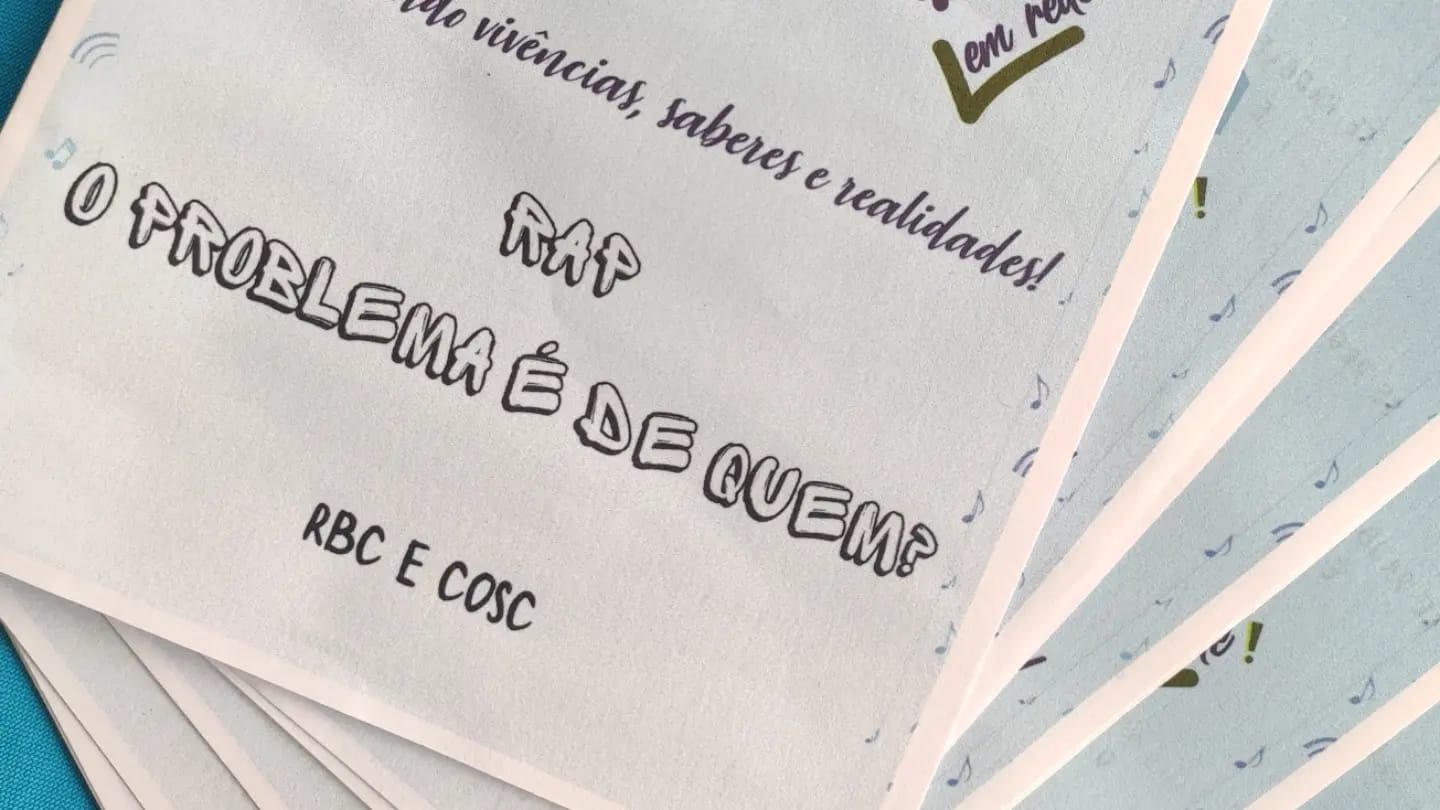 em rede
vivências, saberes e realidades!
RAP
O PROBLEMA É DE QUEM?
RBC E COSC
!
!